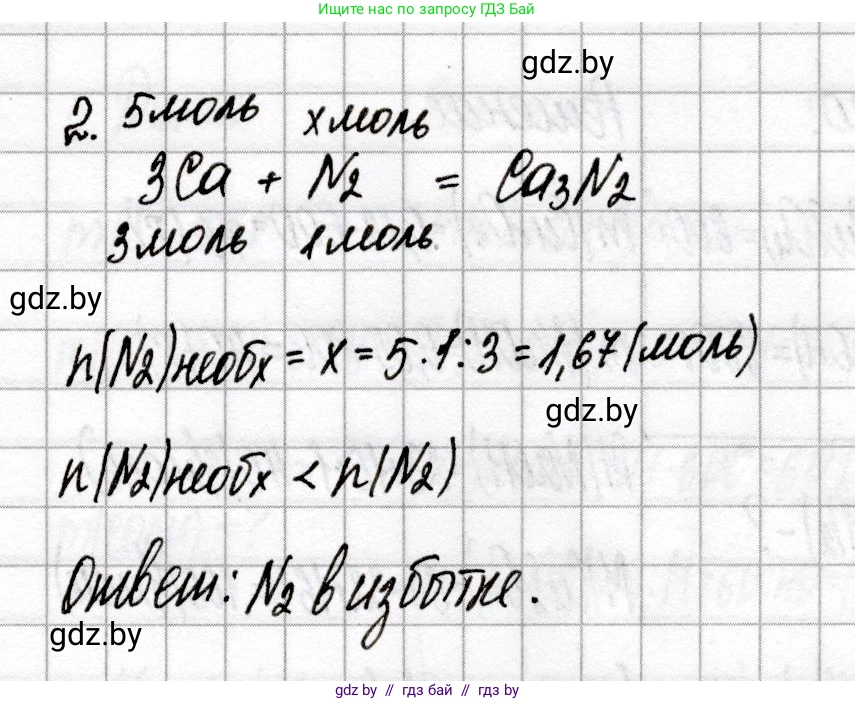 Ищите нас по запросу ГДЗ Бай
gdz.by
2. 5 моль x моль
3Ca + N2 = Ca3N2
3 моль 1 моль
gdz.by
n(N2)необх = x = 5 · 1 : 3 = 1,67 (моль)
gdz.by
n(N2)необх < n(N2)
Ответ: N2 в избытке.
gdz.by
gdz by // гдз бай // гдз by